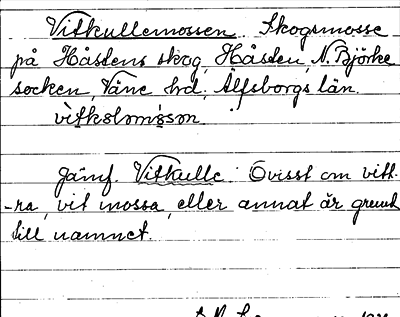 Vitkullemossen Skogsmosse
på Håstens skog, Håsten, N. Björke
socken Väne hd. Älfsborgs län.
Jämf. Vitkulle. Ovisst om vitt-
-ra, vit mossa, eller annat är grund
till namnet.